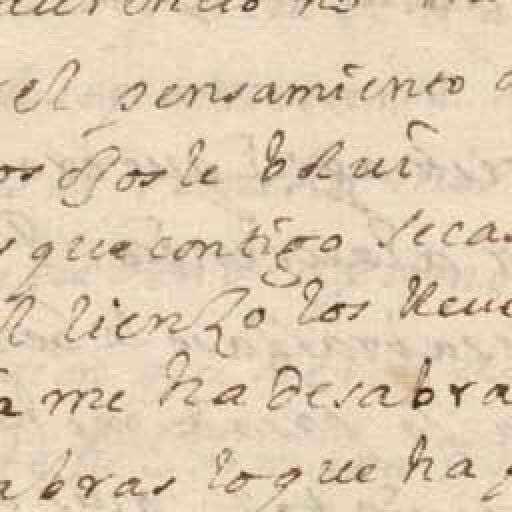 el pensamiento
os ojos le bolui
que contigo secas
el lienzo los lleue
a me ha desabra
abras lo que ha